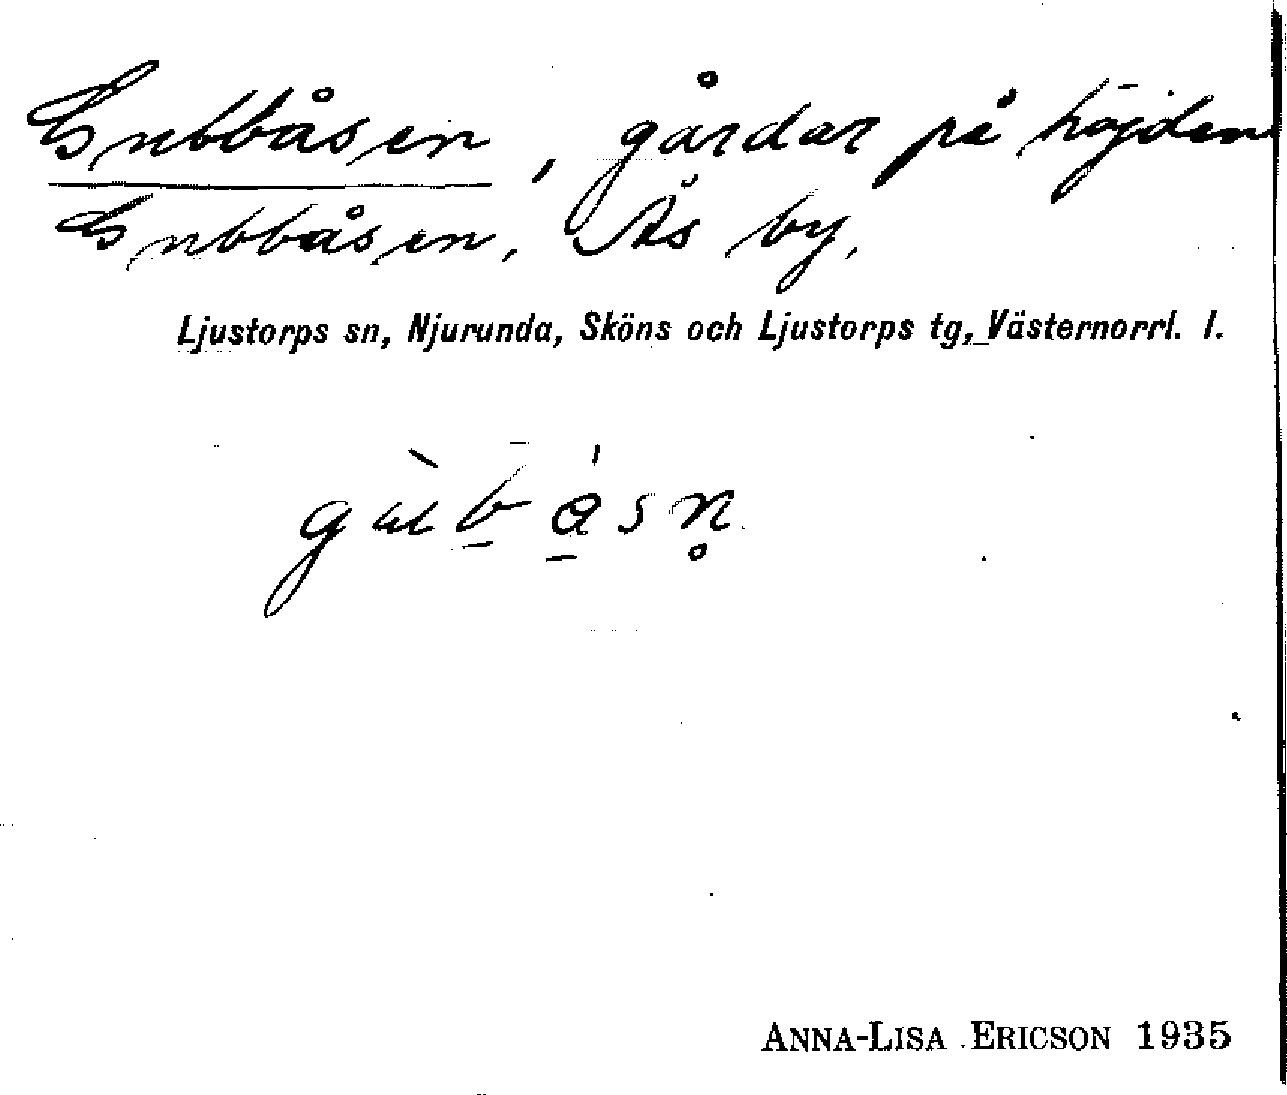 Gubbåsen, gårdar på höjden
Gubbåsen, Ås by.
Ljustorps sn, Njurunda, Sköns och Ljustorps tg, Västernorrl. l.
ANNA-LISA ERICSON 1935